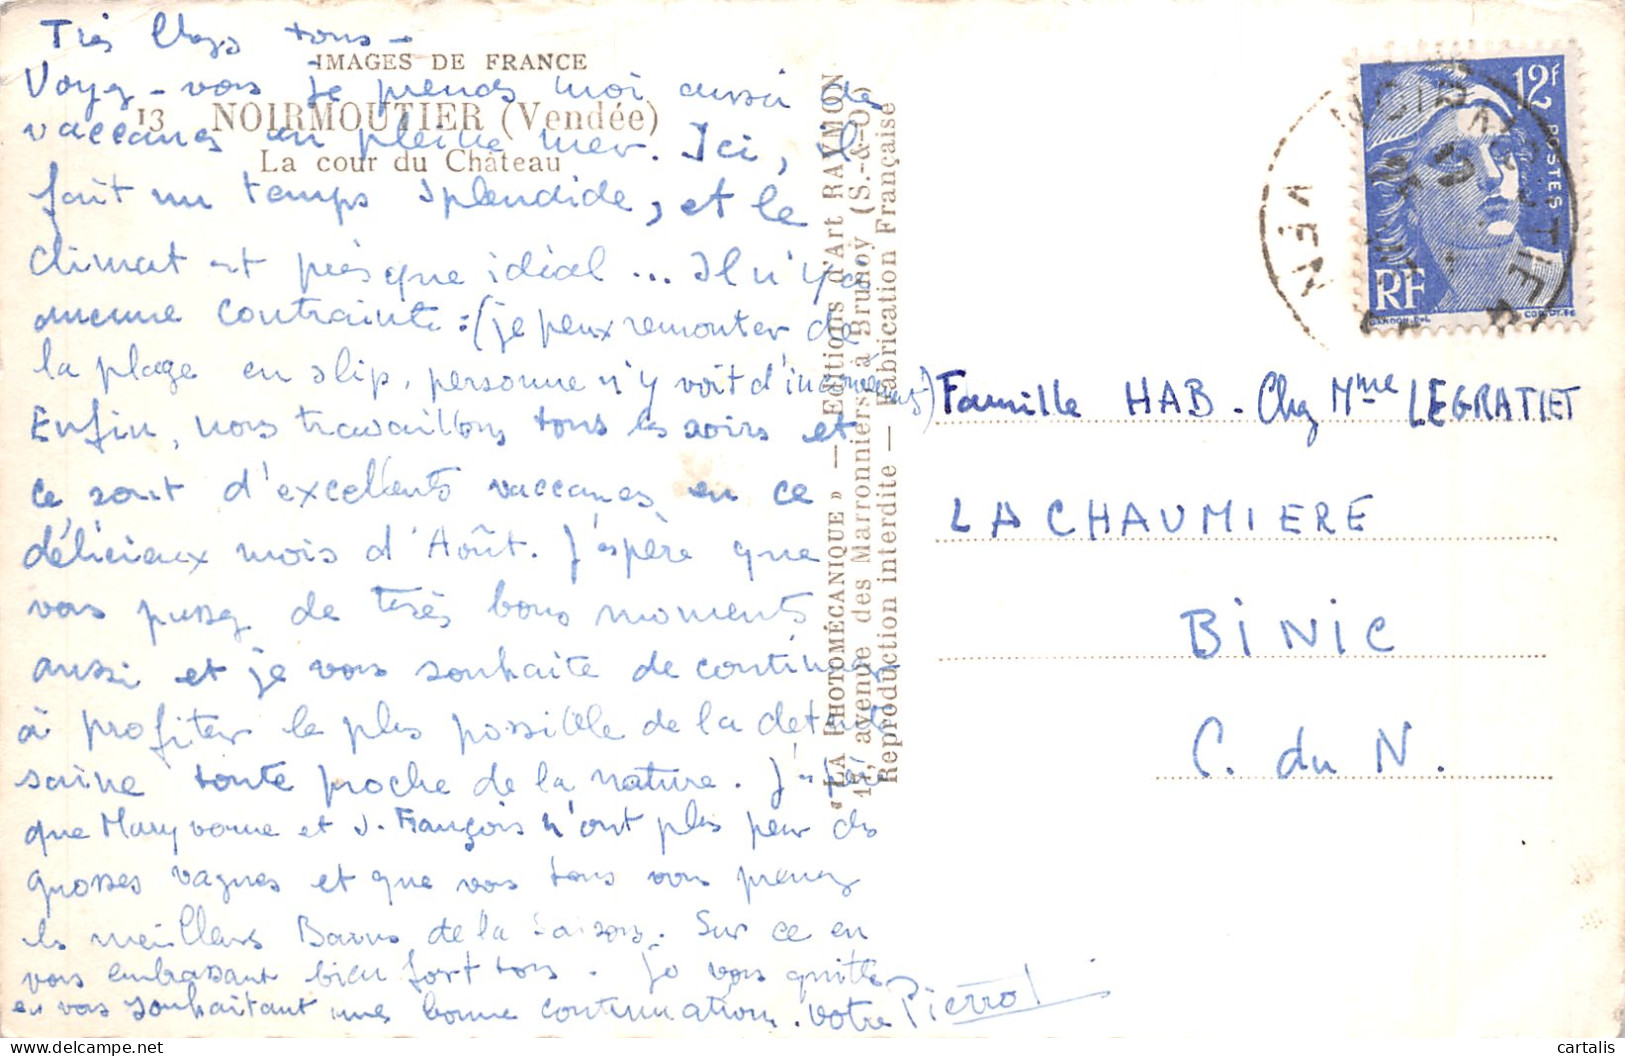 Très chers tous -
IMAGES DE FRANCE
Voyez-vous je prends moi aussi des
13 NOIRMOUTIER (Vendée)
vaccances en pleine mer. Ici, il
La cour du Château
fait un temps splendide, et le
climat est presque idéal ... Il n'y a
aucune contrainte : (je peux remonter de
la plage en slip, personne n'y voit d'inconvénients)
Enfin, nous travaillons tous les soirs et
ce sont d'excellents vaccances en ce
délicieux mois d'Août. J'espère que
vous passez de très bons moments
aussi et je vous souhaite de continuer
à profiter le plus possible de la détente
saine toute proche de la nature. J'espère
que Maryvonne et J. François n'ont plus peur des
grosses vagues et que vous tous vous prenez
les meilleurs Bains de la Saison. Sur ce en
vous embrassant bien fort tous. Je vous quitte
en vous souhaitant une bonne continuation. Votre Pierrot
« LA PHOTOMÉCANIQUE » — Editions d'Art RAYMON
15, avenue des Marronniers à Brunoy (S.-&-O.)
Reproduction interdite — Fabrication Française
12F
POSTES
RF
GANDON DEL
NOIRMOUTIER
VEN
Famille HAB - Chez Mme LEGRATIET
LA CHAUMIERE
BINIC
C. du N.
cartalis
delcampe.net